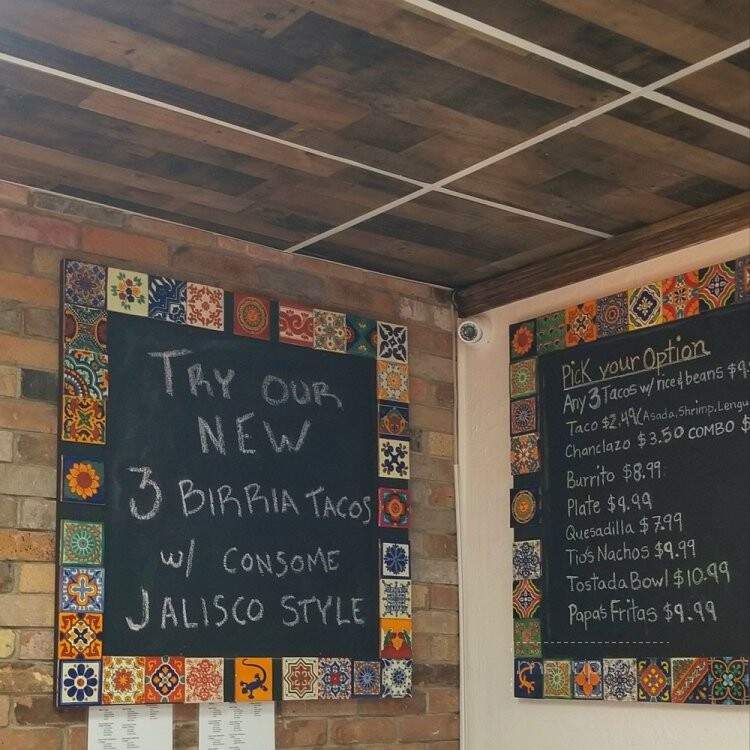 TRY OUR
NEW
3 BIRRIA TACOS
w/ CONSOME
JALISCO STYLE
Pick your Option
Any 3 Tacos w/ rice & beans
Taco $2.49 (Asada, Shrimp,
Chanclazo $3.50 COMBO
Burrito $8.99
Plate $9.99
Quesadilla $7.99
Tio's Nachos $9.99
Tostada Bowl $10.99
Papas Fritas $9.99